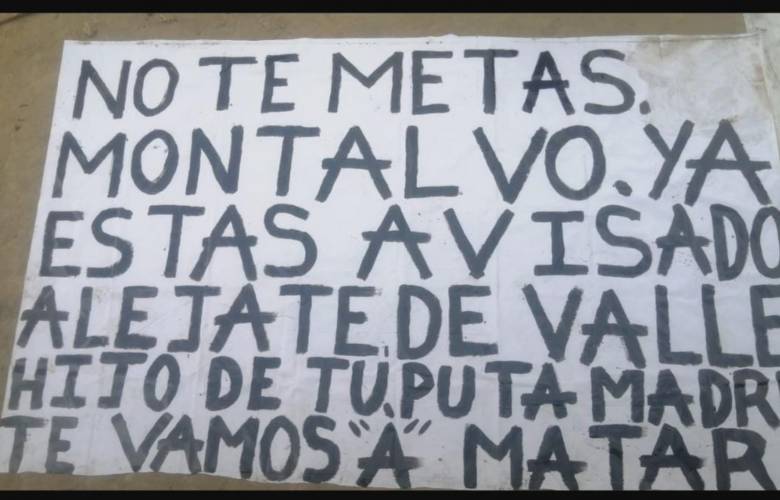 NO TE METAS.
MONTALVO. YA
ESTAS AVISADO
ALEJATE DE VALLE
HIJO DE TU, PUTA MADRE
TE VAMOS "A" MATAR